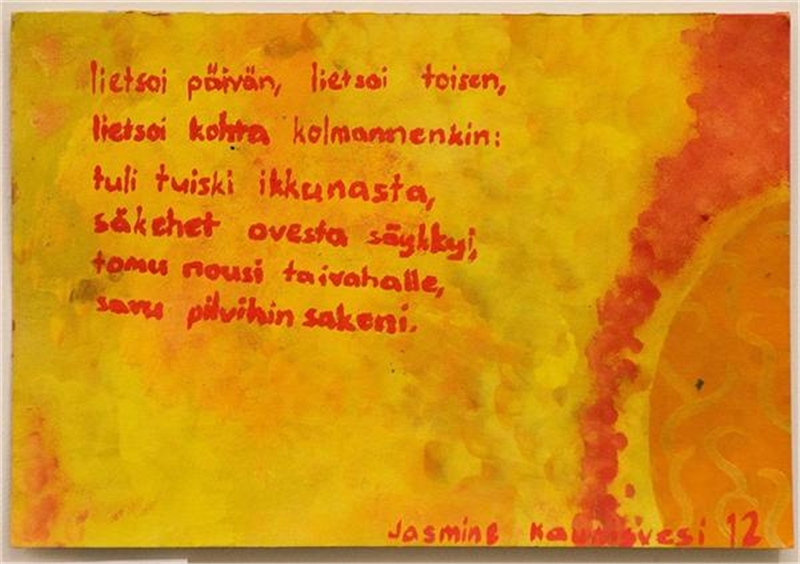 lietsoi päivän, lietsoi toisen,
lietsoi kohta kolmannenkin:
tuli tuiski ikkunasta,
säkehet ovesta säykkyi,
tomu nousi taivahalle,
savu pilvihin sakeni.
Jasmine 12